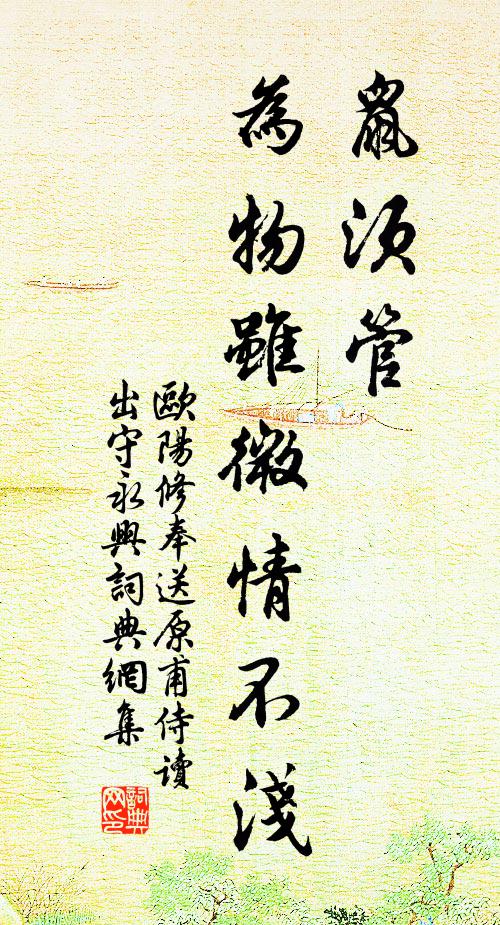 鼠須管
為物雖微情不淺
歐陽修奉送原甫侍讀
出守永興詞典網集
詞典
网印